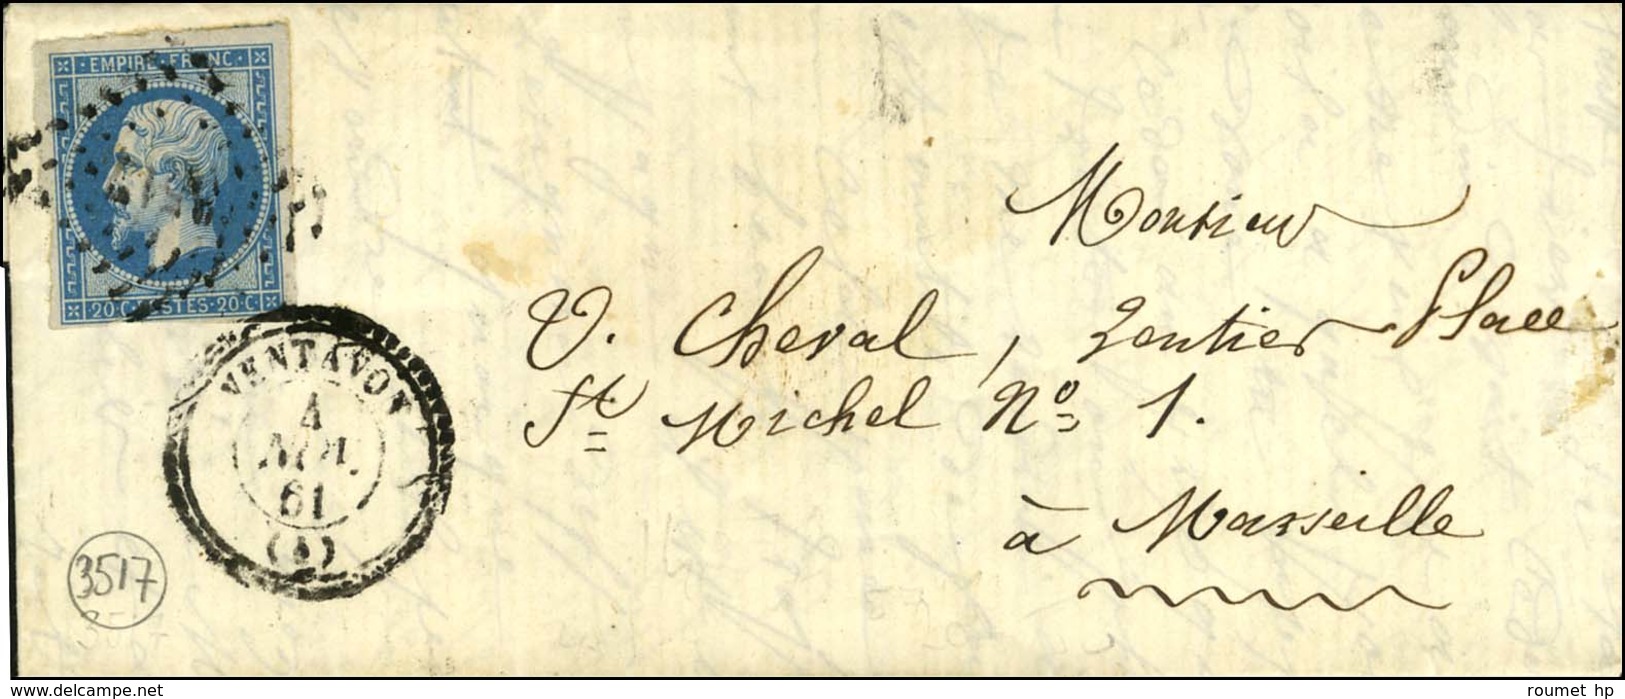 EMPIRE · FRANC ·
· 20 · C · POSTES · 20 · C ·
VENTAVON
4
61
(4)
3517
Monsieur
V. Cheval, Rentier Place
St Michel No 1.
à Marseille
www.delcampe.net
roumet hp